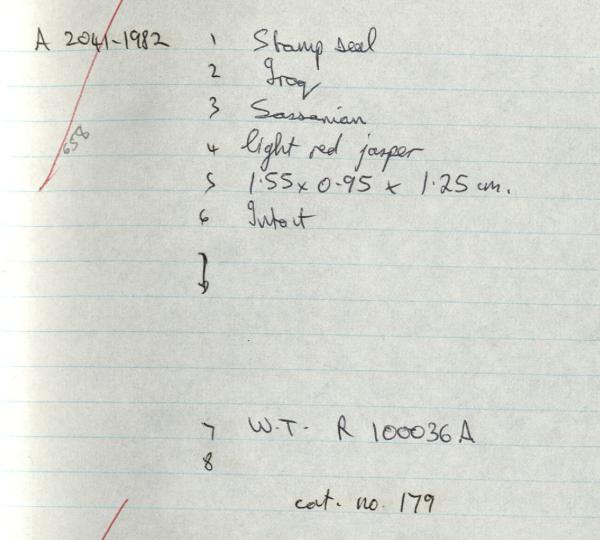 A 2041-1982 1 Stamp seal
2 Iraq
3 Sassanian
658
4 light red jasper
5 1.55 x 0.95 x 1.25 cm.
6 Intact
7 W.T. R 100036A
8
cat. no. 179